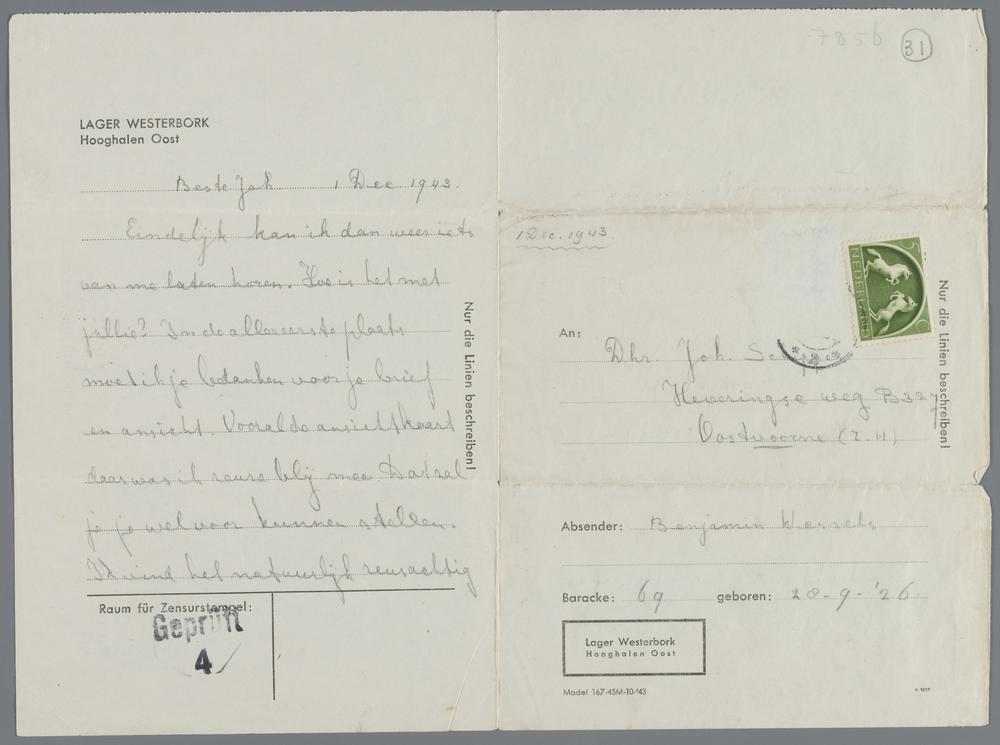 LAGER WESTERBORK
Hooghalen Oost
Beste Joh 1 Dec 1943.
Eindelijk kan ik dan weer iets
van me laten horen. Hoe is het met
jullie? In de allereerste plaats
moet ik je bedanken voor je brief
en ansicht. Vooral de ansichtkaart
daar was ik reuze blij mee Dat zal
je je wel voor kunnen stellen.
Ik vind het natuurlijk reusachtig
Raum für Zensurstempel:
Geprüft
4
Nur die Linien beschreiben!
7856
31
1 Dec. 1943
NEDERLAND
5 C
An:
Dhr. Joh.
Heveringse weg B327
Oostvoorne (Z.H)
Nur die Linien beschreiben!
Absender: Benjamin
Baracke: 69 geboren: 28-9-'26
Lager Westerbork
Hooghalen Oost
Model 167-45M-10-'43